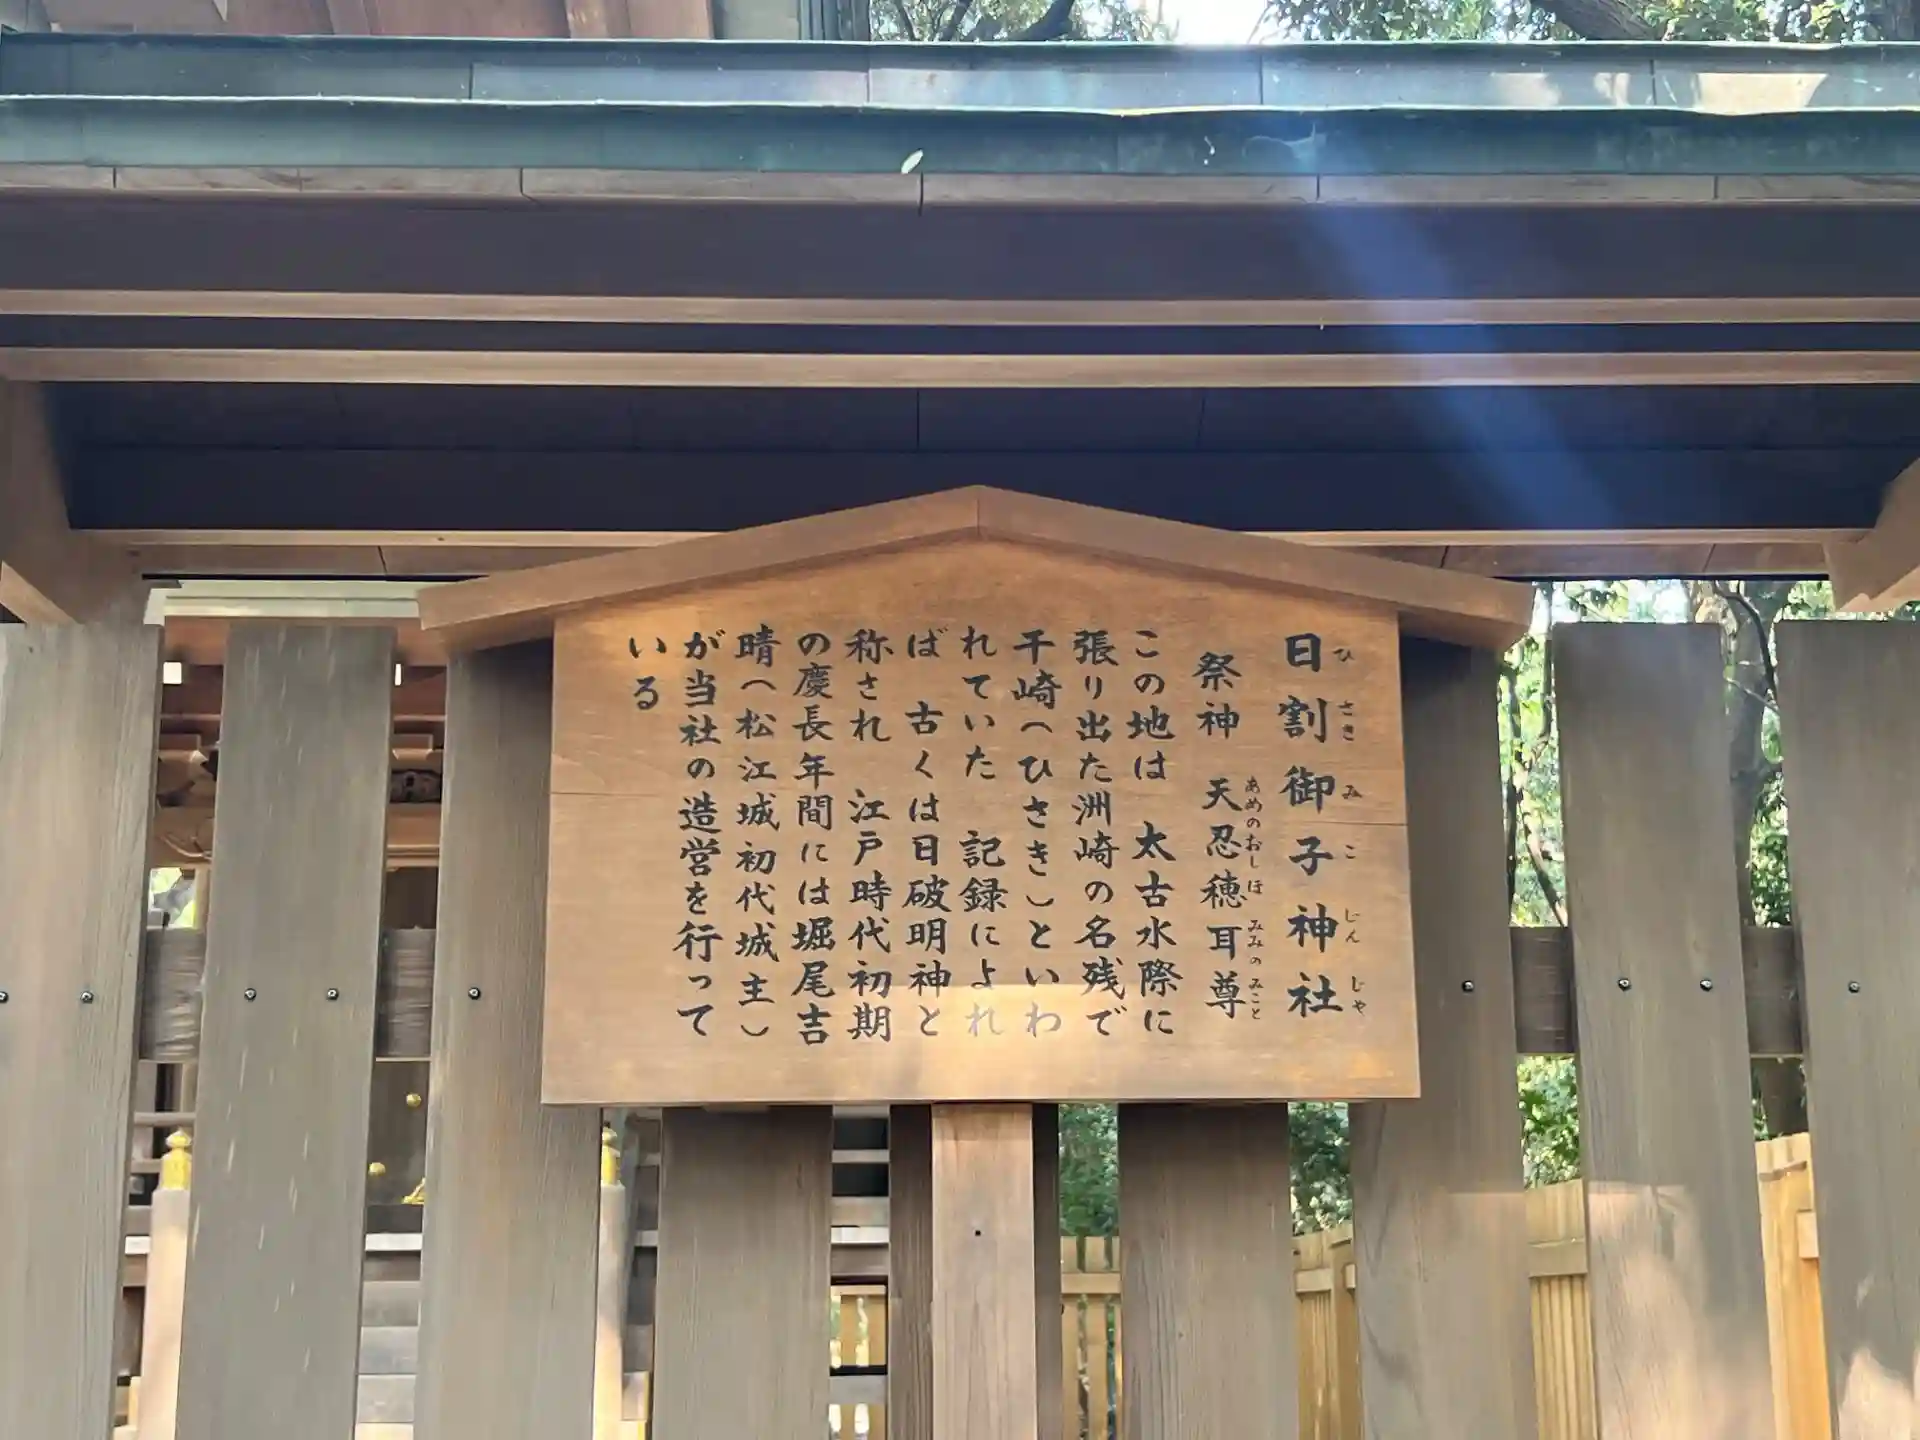 日割御子神社
ひさきみこじんじゃ
祭神　天忍穂耳尊
あめのおしほみみのみこと
この地は　太古水際に
張り出た洲崎の名残で
干崎（ひさき）といわ
れていた　記録によれ
ば　古くは日破明神と
称され　江戸時代初期
の慶長年間には堀尾吉
晴（松江城初代城主）
が当社の造営を行って
いる